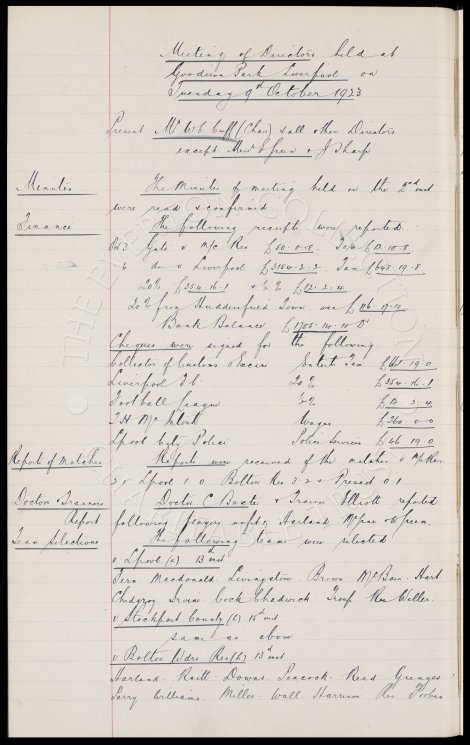 Meeting of Directors held at
Goodison Park Liverpool on
Tuesday 9th October 1923
Present Mr W C Cuff (Chair) & all other Directors
except Messrs E Green & J Sharp
Minutes
The Minutes of meeting held on the 2nd inst
were read & confirmed
Finance
The following receipts were reported.
Oct 3 Gate v M/C Res Tax
6 do v Liverpool £3154.2.2 Tax £645.19.8
20% £354.16.1 & % £12.2.4
20% from Huddersfield Town
Bank Balance £1705.14.10
Cheques were signed for the following
Collector of Customs & Excise Entert Tax
Liverpool F.C. 20% £354.16.1
Football League % £12.2.4
T H McIntosh Wages £260.0.0
Lpool City Police Police Services £46.19.0
Report of Matches
Reports were received of the matches v M/c Res
2.1 Lpool 1.0 Bolton Res 3.2 & Prescot 0.1
Doctor & Trainers
Report
Doctor C Baxter & Trainer Elliott reported
following players unfit, Harland,
Team Selections
The following team were selected
v Lpool (a) 13th inst
Fern Macdonald Livingstone Brown McBain Hart
Chedgzoy Irvine Cock Chadwick Troup Res Weller
v Stockport County (L)
same as above
v Bolton Wdrs Res (h) 13th inst
Harland Raitt Downs Peacock Reid Grenyer
Parry Williams Miller Wall Harrison Res Forbes
THE EVERTON COLLECTION